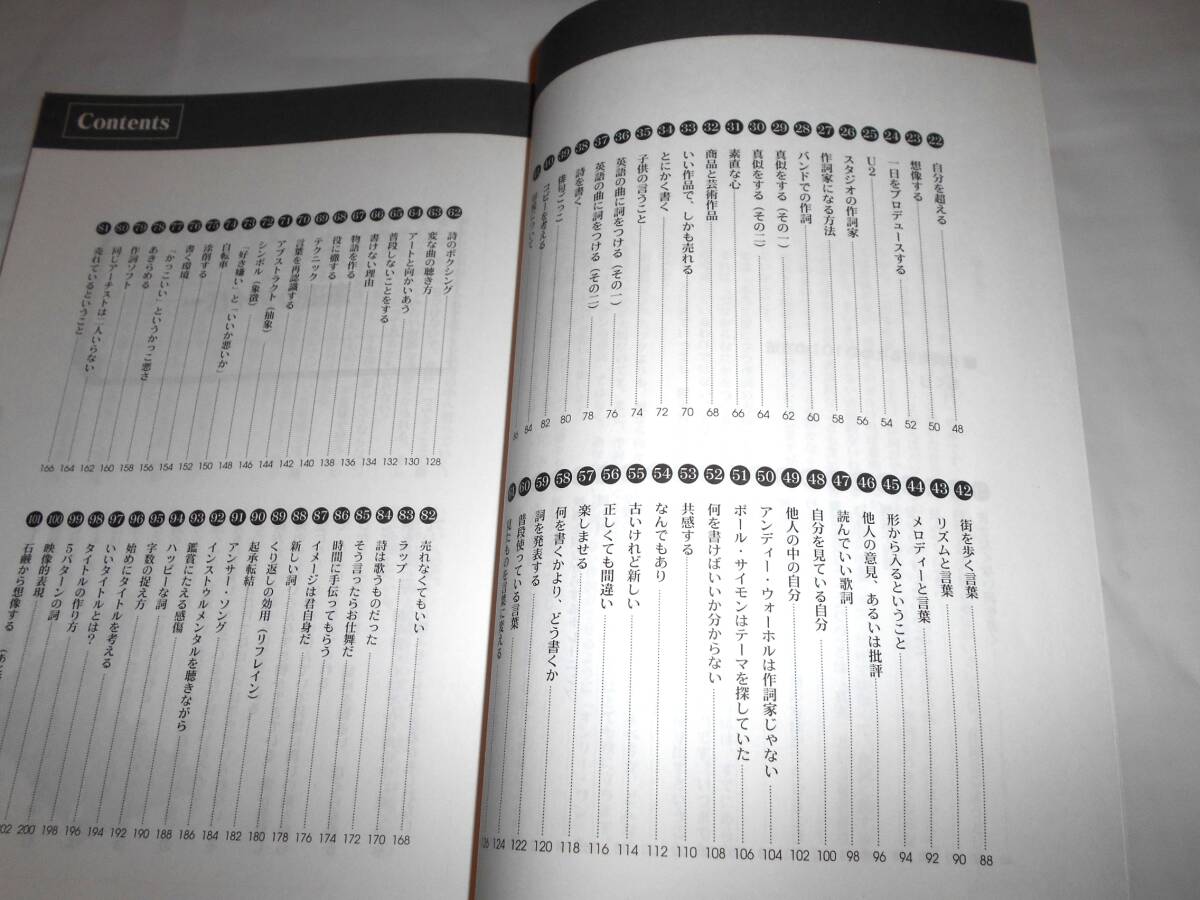 22 自分を超える 48
23 想像する 50
24 一日をプロデュースする 52
25 U2 54
26 スタジオの作詞家 56
27 作詞家になる方法 58
28 バンドでの作詞 60
29 真似をする（その一） 62
30 真似をする（その二） 64
31 素直な心 66
32 商品と芸術作品 68
33 いい作品で、しかも売れる 70
34 とにかく書く 72
35 子供の言うこと 74
36 英語の曲に詞をつける（その一） 76
37 英語の曲に詞をつける（その二） 78
38 詩を書く 80
39 俳句ごっこ 82
40 コピーを考える 84
86
42 街を歩く言葉 88
43 リズムと言葉 90
44 メロディーと言葉 92
45 形から入るということ 94
46 他人の意見、あるいは批評 96
47 読んでいい歌詞 98
48 自分を見ている自分 100
49 他人の中の自分 102
50 アンディー・ウォーホルは作詞家じゃない 104
51 ポール・サイモンはテーマを探していた 106
52 何を書けばいいか分からない 108
53 共感する 110
54 なんでもあり 112
55 古いけれど新しい 114
56 正しくても間違い 116
57 楽しませる 118
58 何を書くかより、どう書くか 120
59 詞を発表する 122
60 普段使っている言葉 124
61 見たものを言葉に変える 126
Contents
62 詩のボクシング 128
63 変な曲の聴き方 130
64 アートと向かいあう 132
65 普段しないことをする 134
66 書けない理由 136
67 物語を作る 138
68 役に徹する 140
69 テクニック 142
70 言葉を再認識する 144
71 アブストラクト（抽象） 146
72 シンボル（象徴） 148
73 「好き嫌い」と「いいか悪いか」 150
74 自転車 152
75 添削する 154
76 書く環境 156
77 「かっこいい」というかっこ悪さ 158
78 あきらめる 160
79 作詞ソフト 162
80 同じアーチストは二人いらない 164
81 売れているということ 166
82 売れなくてもいい 168
83 ラップ 170
84 詩は歌うものだった 172
85 そう言ったらお仕舞だ 174
86 時間に手伝ってもらう 176
87 イメージは君自身だ 178
88 新しい詞 180
89 くり返しの効用（リフレイン） 182
90 起承転結 184
91 アンサー・ソング 186
92 インストゥルメンタルを聴きながら 188
93 鑑賞にたえる感傷 190
94 ハッピーな詞 192
95 字数の捉え方 194
96 始めにタイトルを考える 196
97 いいタイトルとは？ 198
98 タイトルの作り方 200
99 5パターンの詞
100 映像的表現
101 石鹸から想像する